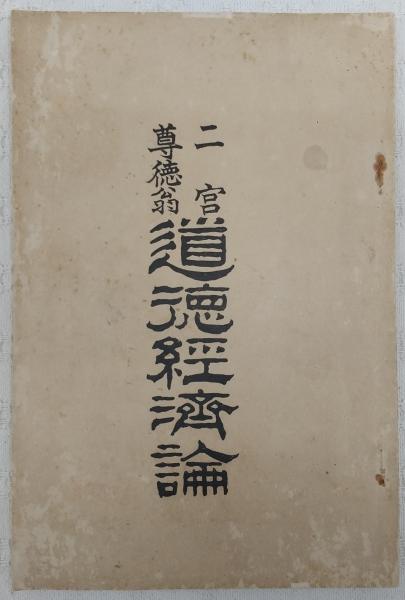 二宮
尊徳翁
道德經濟論